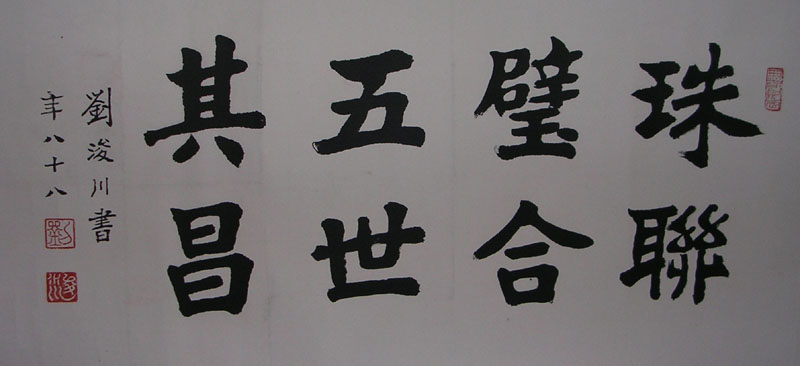 珠聯
璧合
五世
其昌
劉浚川書
年八十八